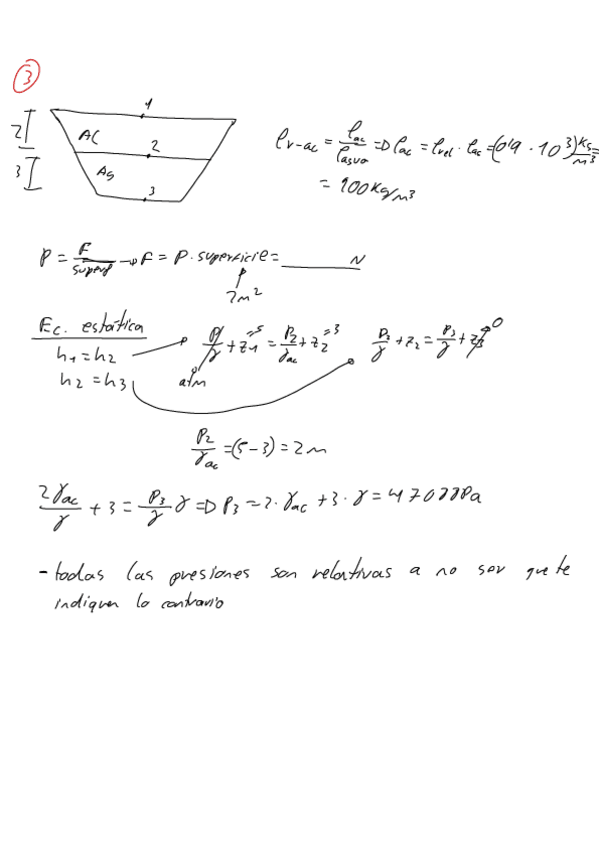 3
1
2
AC
2
3
Ag
3
ρr-ac = ρac / ρagua => ρac = ρrel · ρac = (0'9 · 10³) Kg/m³ =
= 900 Kg/m³
P = F / superf → F = P · superficie = ______ N
2m²
Ec. estática
h1 = h2
h2 = h3
P1/γ + z1 = P2/γac + z2
=5
=3
atm
P2/γ + z2 = P3/γ + z3
0
P2/γac = (5 - 3) = 2m
2γac/γ + 3 = P3/γ γ => P3 = 2 · γac + 3 · γ = 47088Pa
- todas las presiones son relativas a no ser que te
indiquen lo contrario